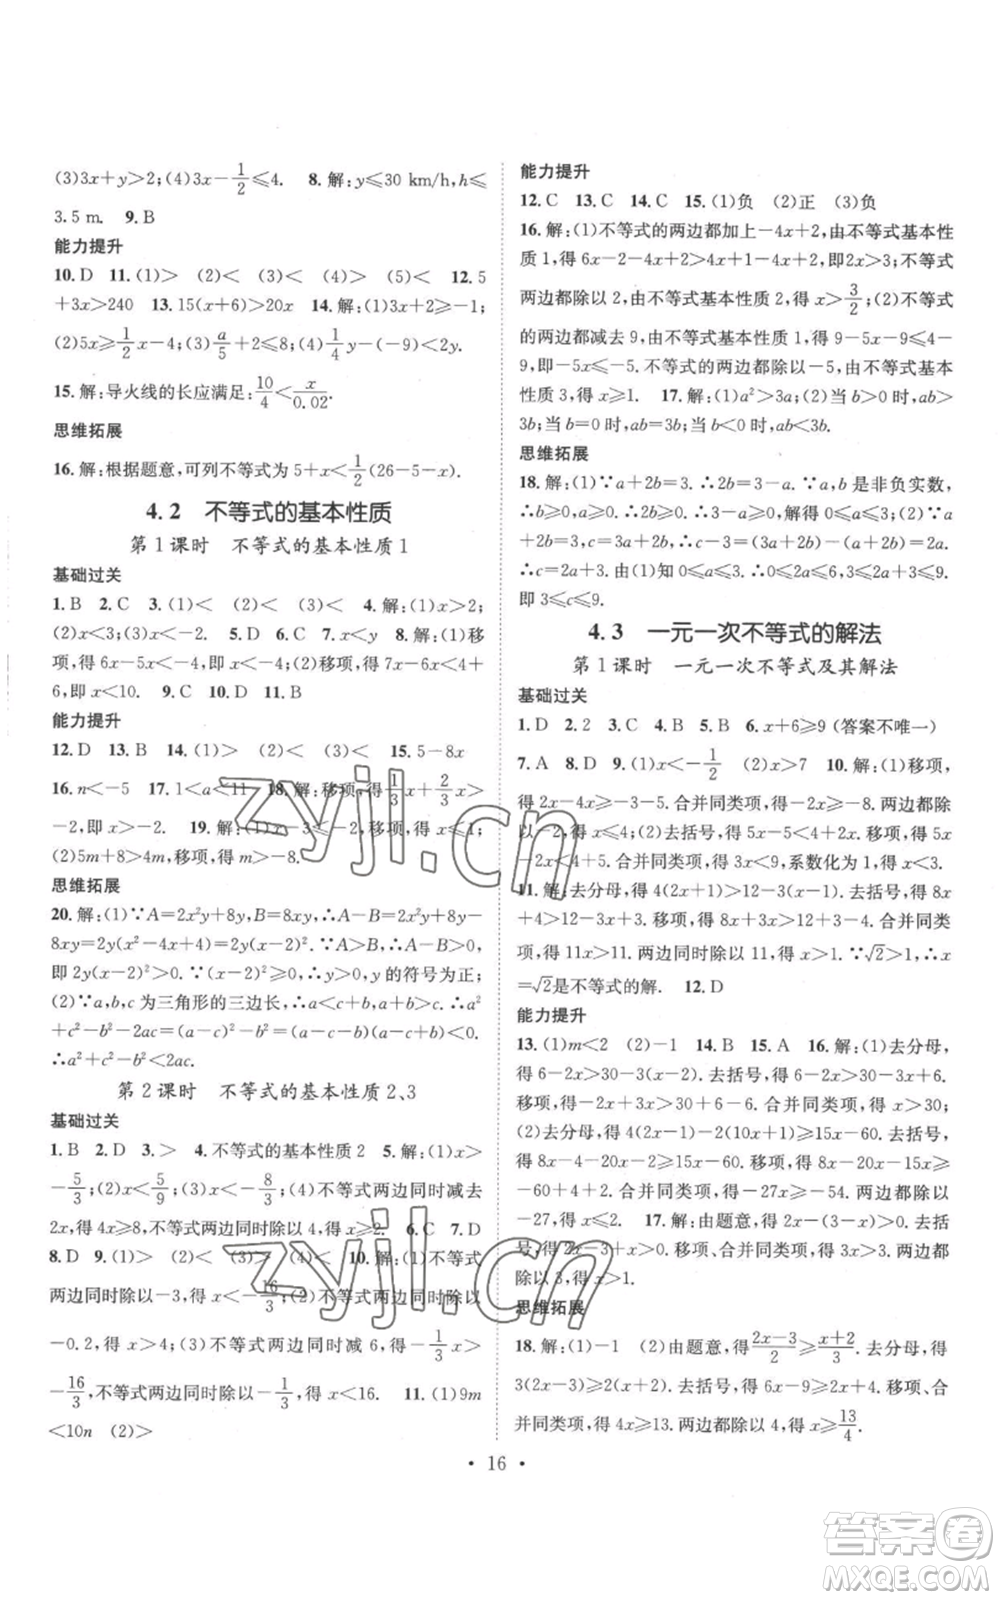 (3)3x+y>2;(4)3x-1/2≤4. 8.解:y≤30 km/h,h≤
3.5 m. 9.B
能力提升
10.D 11.(1)> (2)< (3)< (4)< 12.5
+3x>240 13.15(x+6)>20x 14.解:(1)3x+2≥-1;
(2)5x≥1/2x-4;(3)a/5+2≤8;(4)1/4y-(-9)<2y.
15.解:导火线的长应满足:10/4<x/0.02.
思维拓展
16.解:根据题意,可列不等式为5+x<1/2(26-5-x).
4.2 不等式的基本性质
第1课时 不等式的基本性质1
基础过关
1.B 2.C 3.(1)< (2)< (3)< 4.解:(1)x>2;
(2)x<3;(3)x<-2. 5.D 6.D 7.x<y 8.解:(1)移
项,得6x-5x<10,即x<10;(2)移项,得7x-6x<4+
6,即x<10. 9.C 10.D 11.B
能力提升
12.D 13.B 14.(1)> (2)< (3)< 15.5-8x
16.n<-5 17.1<a<11 18.解:移项,得1/3x+2/3x>
-2,即x>-2. 19.解:(1)x-3≤-2,移项,得x≤1;
(2)5m+8>4m,移项,得m>-8.
思维拓展
20.解:(1)∵A=2x²y+8y,B=8xy,∴A-B=2x²y+8y-
8xy=2y(x²-4x+4)=2y(x-2)².∵A>B,∴A-B>0,
即2y(x-2)²>0.∵(x-2)²>0,∴y的符号为正;
(2)∵a,b,c为三角形的三边长,∴a<c+b,a+b>c.∴a²
+c²-b²-2ac=(a-c)²-b²=(a-c-b)(a-c+b)<0.
∴a²+c²-b²<2ac.
第2课时 不等式的基本性质2、3
基础过关
1.B 2.D 3.> 4.不等式的基本性质2 5.解:(1)x>
-5/3;(2)x<5/9;(3)x<-8/3;(4)不等式两边同时减去
2x,得4x≥8,不等式两边同时除以4,得x≥2. 6.C 7.D
8.D 9.(1)> (2)< (3)> (4)< 10.解:(1)不等式
两边同时除以-3,得x<-16/3;(2)不等式两边同时除以
-0.2,得x>4;(3)不等式两边同时减6,得-1/3x>
-16/3,不等式两边同时除以-1/3,得x<16. 11.(1)9m
<10n (2)>
能力提升
12.C 13.C 14.C 15.(1)负 (2)正 (3)负
16.解:(1)不等式的两边都加上-4x+2,由不等式基本
性质1,得6x-2-4x+2>4x+1-4x+2,即2x>3;不等式
两边都除以2,由不等式基本性质2,得x>3/2;(2)不等式
的两边都减去9,由不等式基本性质1,得9-5x-9≤4-
9,即-5x≤-5.不等式两边都除以-5,由不等式基本
性质3,得x≥1. 17.解:(1)a²>3a;(2)当b>0时,ab>
3b;当b=0时,ab=3b;当b<0时,ab<3b.
思维拓展
18.解:(1)∵a+2b=3.∴2b=3-a.∵a,b是非负实数,
∴b≥0,a≥0.∴2b≥0.∴3-a≥0.解得0≤a≤3;(2)∵
a+2b=3,∴2b=3-a.∵c=3a+2b,∴c-3a=2b=3-a.
∴c=2a+3.由(1)知0≤a≤3,∴0≤2a≤6.3≤2a+3≤9.
即3≤c≤9.
4.3 一元一次不等式的解法
第1课时 一元一次不等式及其解法
基础过关
1.D 2.2 3.C 4.B 5.B 6.x+6≥9(答案不唯一)
7.A 8.D 9.(1)x<-1/2 (2)x>7 10.(1)移项,
得2x-4x≥-5-3.合并同类项,得-2x≥-8.两边都除
以-2,得x≤4;(2)去括号,得5x-5<4+2x.移项,得5x
-2x<4+5.合并同类项,得3x<9,系数化为1,得x<3.
11.解:去分母,得4(2x+1)>12-3(x-1).去括号,得8x
+4>12-3x+3,移项,得8x+3x>12+3-4,合并同类
项,得11x>11.两边同时除以11,得x>1.∵√2>1,∴x
=√2是不等式的解. 12.D
能力提升
13.(1)m<2 (2)-1 14.B 15.A 16.解:(1)去分母,
得3(x-2)≥2(7-x).去括号,得3x-6≥14-2x.
移项,得3x+2x≥14+6.合并同类项,得5x≥20.则x≥4;
(2)去分母,得4(2x-1)-2(10x+1)≥15x-60.去括
号,得8x-4-20x-2≥15x-60.移项,得8x-20x-15x≥
-60+4+2.合并同类项,得-27x≥-54.两边都除以
-27,得x≤2. 17.解:由题意,得2x-(3-x)>0.去括
号,得2x-3+x>0.移项、合并同类项,得3x>3.两边都
除以3,得x>1.
思维拓展
18.解:(1)-1 (2)由题意,得(2x-3)/2≥(x+2)/3.去分母,得
3(2x-3)≥2(x+2).去括号,得6x-9≥2x+4.移项、合
并同类项,得4x≥13.两边都除以4,得x≥13/4.
• 16 •
zyjl.cn
zyjl.cn
答案圈
MXQE.COM